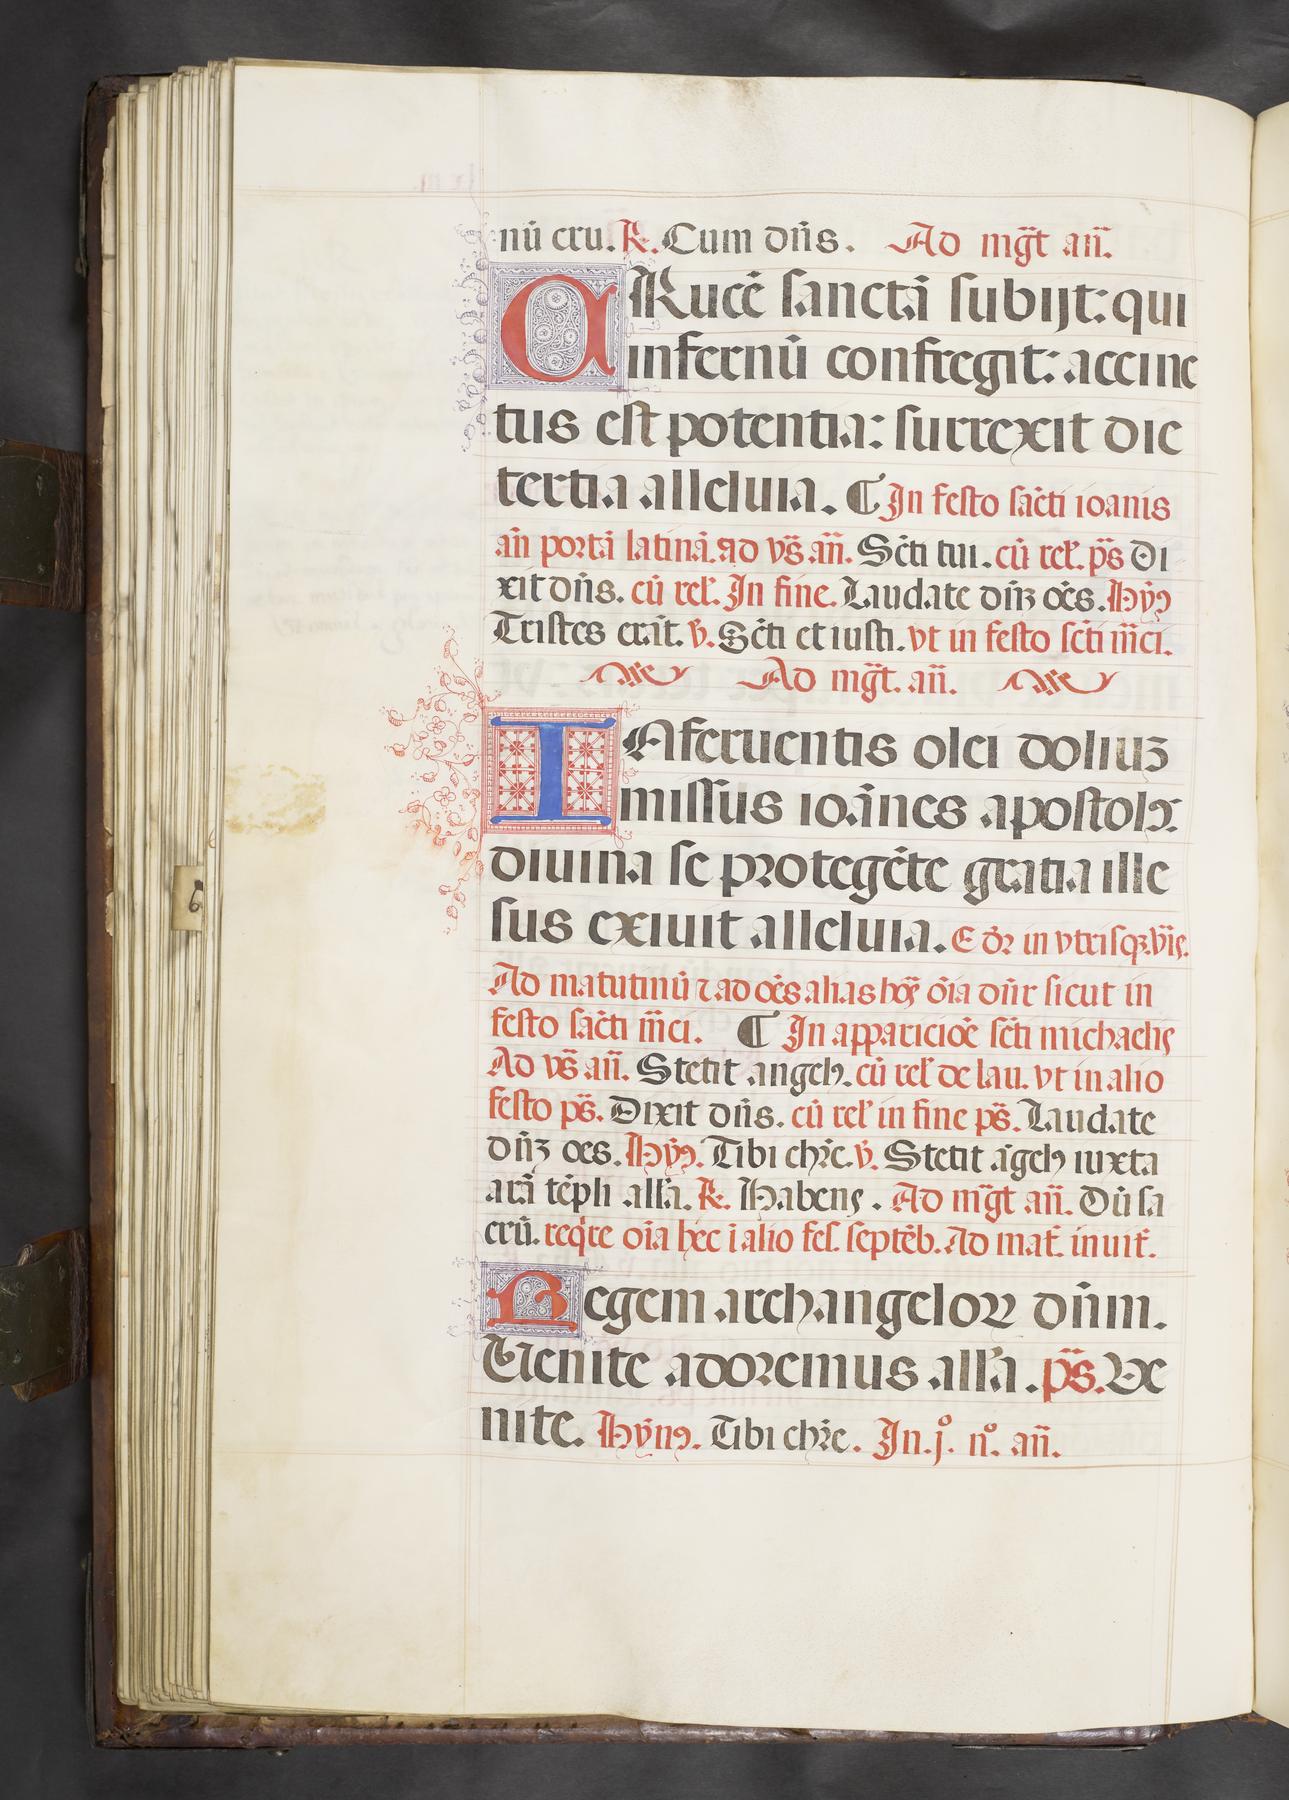 nū cru. R. Cum dn̄s. Ad mḡt an̄.
CRucē sanctā subijt: qui
infernū confregit: accinc
tus est potentia: surrexit die
tertia alleluia. ¶ In festo sācti ioanis
an̄ portā latinā. ad vs̄ an̄. Scti tui. cū rel'. ps̄ Di
xit dn̄s. cū rel'. In fine. Laudate dn̄ꝫ oēs. Hyꝰ
Tristes erāt. v̄. Scti et iusti. vt in festo scti m̄ci.
Ad mḡt. an̄.
INferuentis olei doliuꝫ
missus ioānes apostolꝰ
diuina se protegēte gratia ille
sus exiuit alleluia. E dr̄ in vtrisqꝫ. vīs.
Ad matutinū ⁊ ad oēs alias hoꝝ oīa dn̄r sicut in
festo sācti m̄ci. ¶ In apparicioē scti michaelis
Ad vs̄ an̄. Stetit angelꝰ. cū rel' de lau. vt in alio
festo ps̄. Dixit dn̄s. cū rel' in fine ps̄. Laudate
dn̄ꝫ oes. Hyꝰ. Tibi chr̄e. v̄. Stetit āgelꝰ iuxta
arā tēpli all'a. R. Habens. Ad mḡt an̄. Dū sa
crū. reqre oīa hec ī alio fes. septēb. Ad mat̄. inuit̄.
Regem archangeloꝝ dn̄m.
Uenite adoremus all'a. ps̄. Ve
nite. Hymꝰ. Tibi chr̄e. In. j.º n.º an̄.
6